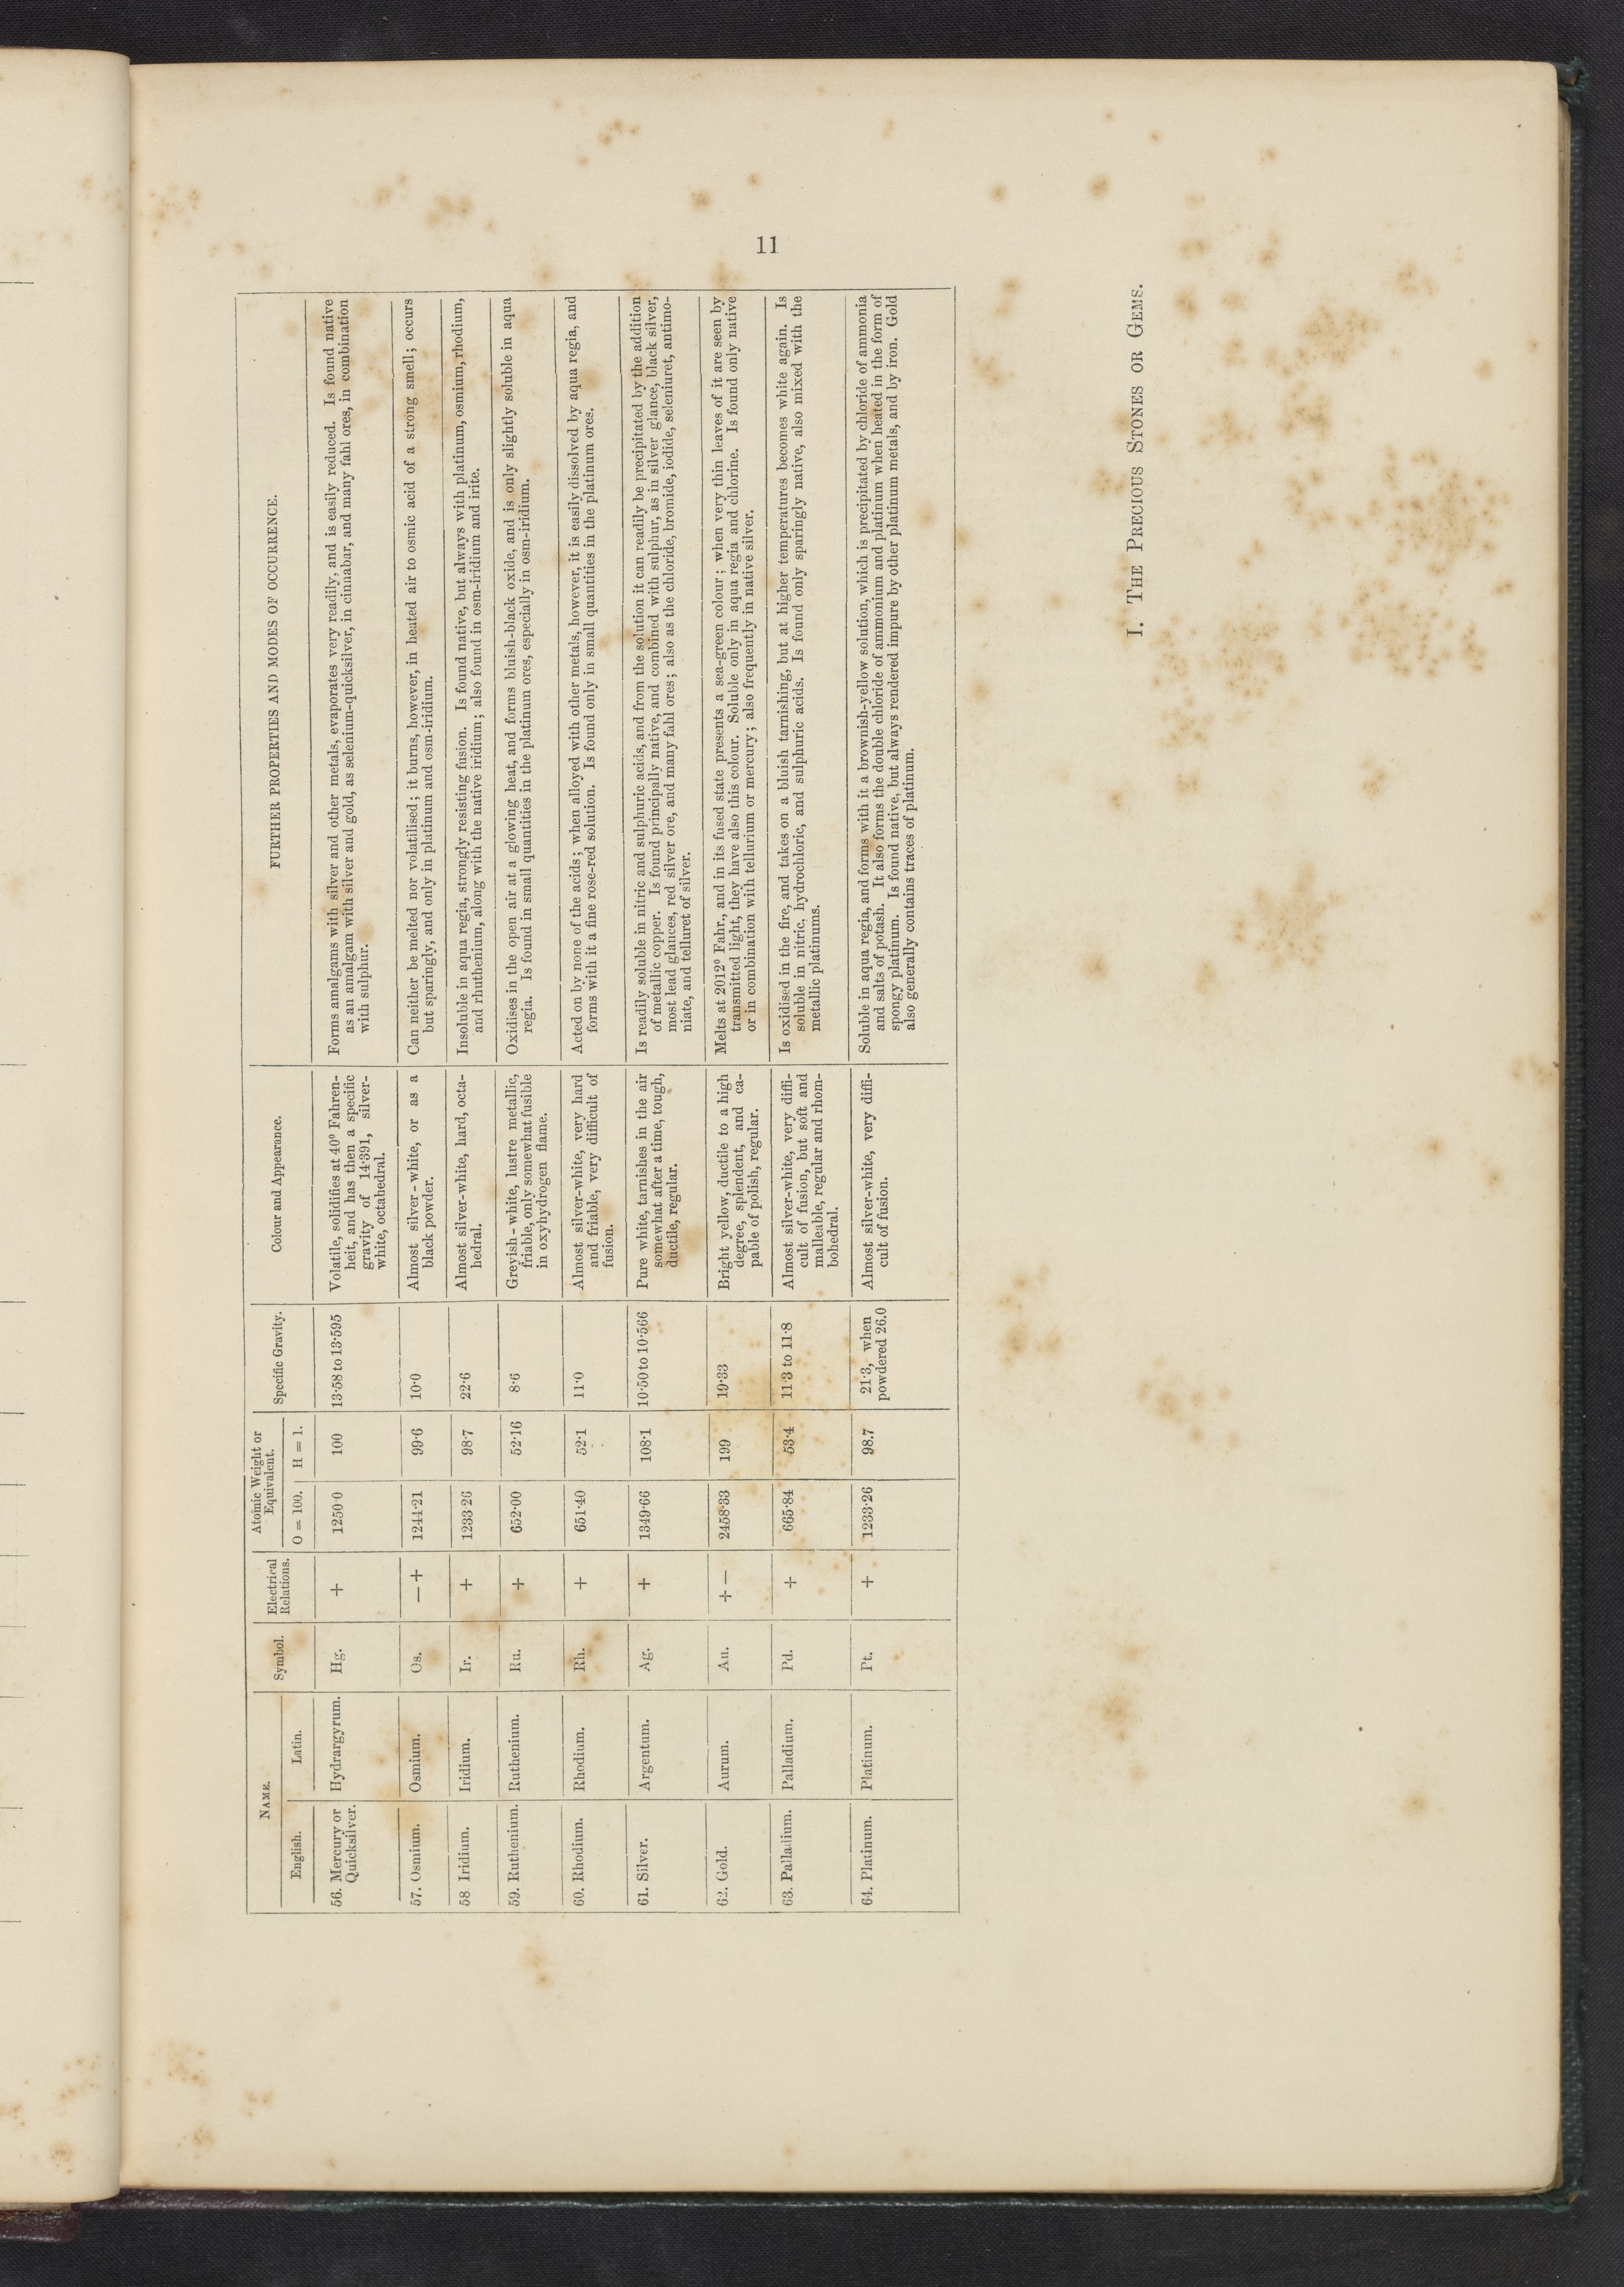 11
NAME.
Symbol.
Electrical
Relations.
Atomic Weight or
Equivalent.
Specific Gravity.
Colour and Appearance.
FURTHER PROPERTIES AND MODES OF OCCURRENCE.
English.
Latin.
O = 100.
H = 1.
56. Mercury or
Quicksilver.
Hydrargyrum.
Hg.
+
1250·0
100
13·58 to 13·595
Volatile, solidifies at 40° Fahren-
heit, and has then a specific
gravity of 14·391, silver-
white, octahedral.
Forms amalgams with silver and other metals, evaporates very readily, and is easily reduced. Is found native
as an amalgam with silver and gold, as selenium-quicksilver, in cinnabar, and many fahl ores, in combination
with sulphur.
57. Osmium.
Osmium.
Os.
— +
1244·21
99·6
10·0
Almost silver-white, or as a
black powder.
Can neither be melted nor volatilised; it burns, however, in heated air to osmic acid of a strong smell; occurs
but sparingly, and only in platinum and osm-iridium.
58 Iridium.
Iridium.
Ir.
+
1233·26
98·7
22·6
Almost silver-white, hard, octa-
hedral.
Insoluble in aqua regia, strongly resisting fusion. Is found native, but always with platinum, osmium, rhodium,
and rhuthenium, along with the native iridium; also found in osm-iridium and irite.
59. Ruthenium.
Ruthenium.
Ru.
+
652·00
52·16
8·6
Greyish-white, lustre metallic,
friable, only somewhat fusible
in oxyhydrogen flame.
Oxidises in the open air at a glowing heat, and forms bluish-black oxide, and is only slightly soluble in aqua
regia. Is found in small quantities in the platinum ores, especially in osm-iridium.
60. Rhodium.
Rhodium.
Rh.
+
651·40
52·1
11·0
Almost silver-white, very hard
and friable, very difficult of
fusion.
Acted on by none of the acids; when alloyed with other metals, however, it is easily dissolved by aqua regia, and
forms with it a fine rose-red solution. Is found only in small quantities in the platinum ores.
61. Silver.
Argentum.
Ag.
+
1349·66
108·1
10·50 to 10·566
Pure white, tarnishes in the air
somewhat after a time, tough,
ductile, regular.
Is readily soluble in nitric and sulphuric acids, and from the solution it can readily be precipitated by the addition
of metallic copper. Is found principally native, and combined with sulphur, as in silver glance, black silver,
most lead glances, red silver ore, and many fahl ores; also as the chloride, bromide, iodide, seleniuret, antimo-
niate, and telluret of silver.
62. Gold.
Aurum.
Au.
+ —
2458·33
199
19·33
Bright yellow, ductile to a high
degree, splendent, and ca-
pable of polish, regular.
Melts at 2012° Fahr., and in its fused state presents a sea-green colour; when very thin leaves of it are seen by
transmitted light, they have also this colour. Soluble only in aqua regia and chlorine. Is found only native
or in combination with tellurium or mercury; also frequently in native silver.
63. Palladium.
Palladium.
Pd.
+
665·84
53·4
11·3 to 11·8
Almost silver-white, very diffi-
cult of fusion, but soft and
malleable, regular and rhom-
bohedral.
Is oxidised in the fire, and takes on a bluish tarnishing, but at higher temperatures becomes white again. Is
soluble in nitric, hydrochloric, and sulphuric acids. Is found only sparingly native, also mixed with the
metallic platinums.
64. Platinum.
Platinum.
Pt.
+
1233·26
98.7
21·3, when
powdered 26.0
Almost silver-white, very diffi-
cult of fusion.
Soluble in aqua regia, and forms with it a brownish-yellow solution, which is precipitated by chloride of ammonia
and salts of potash. It also forms the double chloride of ammonium and platinum when heated in the form of
spongy platinum. Is found native, but always rendered impure by other platinum metals, and by iron. Gold
also generally contains traces of platinum.
I. THE PRECIOUS STONES OR GEMS.